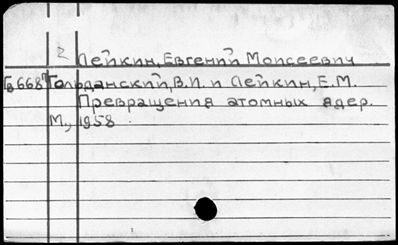 2 Лейкин, Евгений Моисеевич
Гб668 Гольданский, В.И. и Лейкин, Е.М.
Превращения атомных ядер.
М., 1958